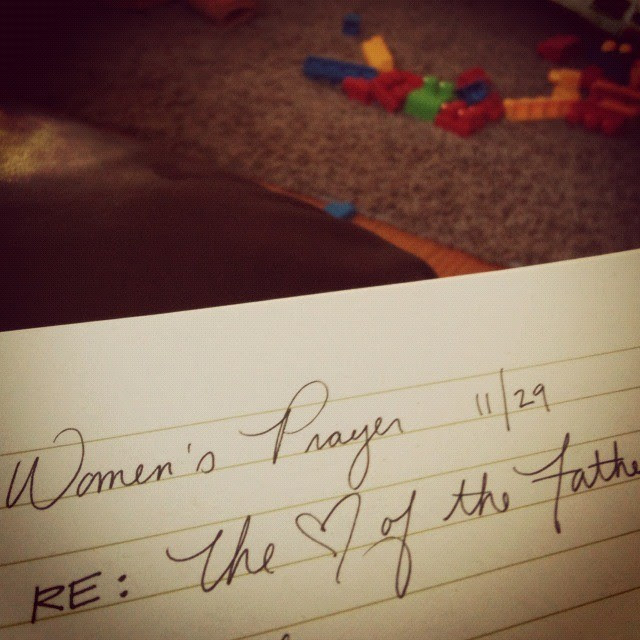 Women's Prayer 11/29
RE: The ♡ of the Fathe